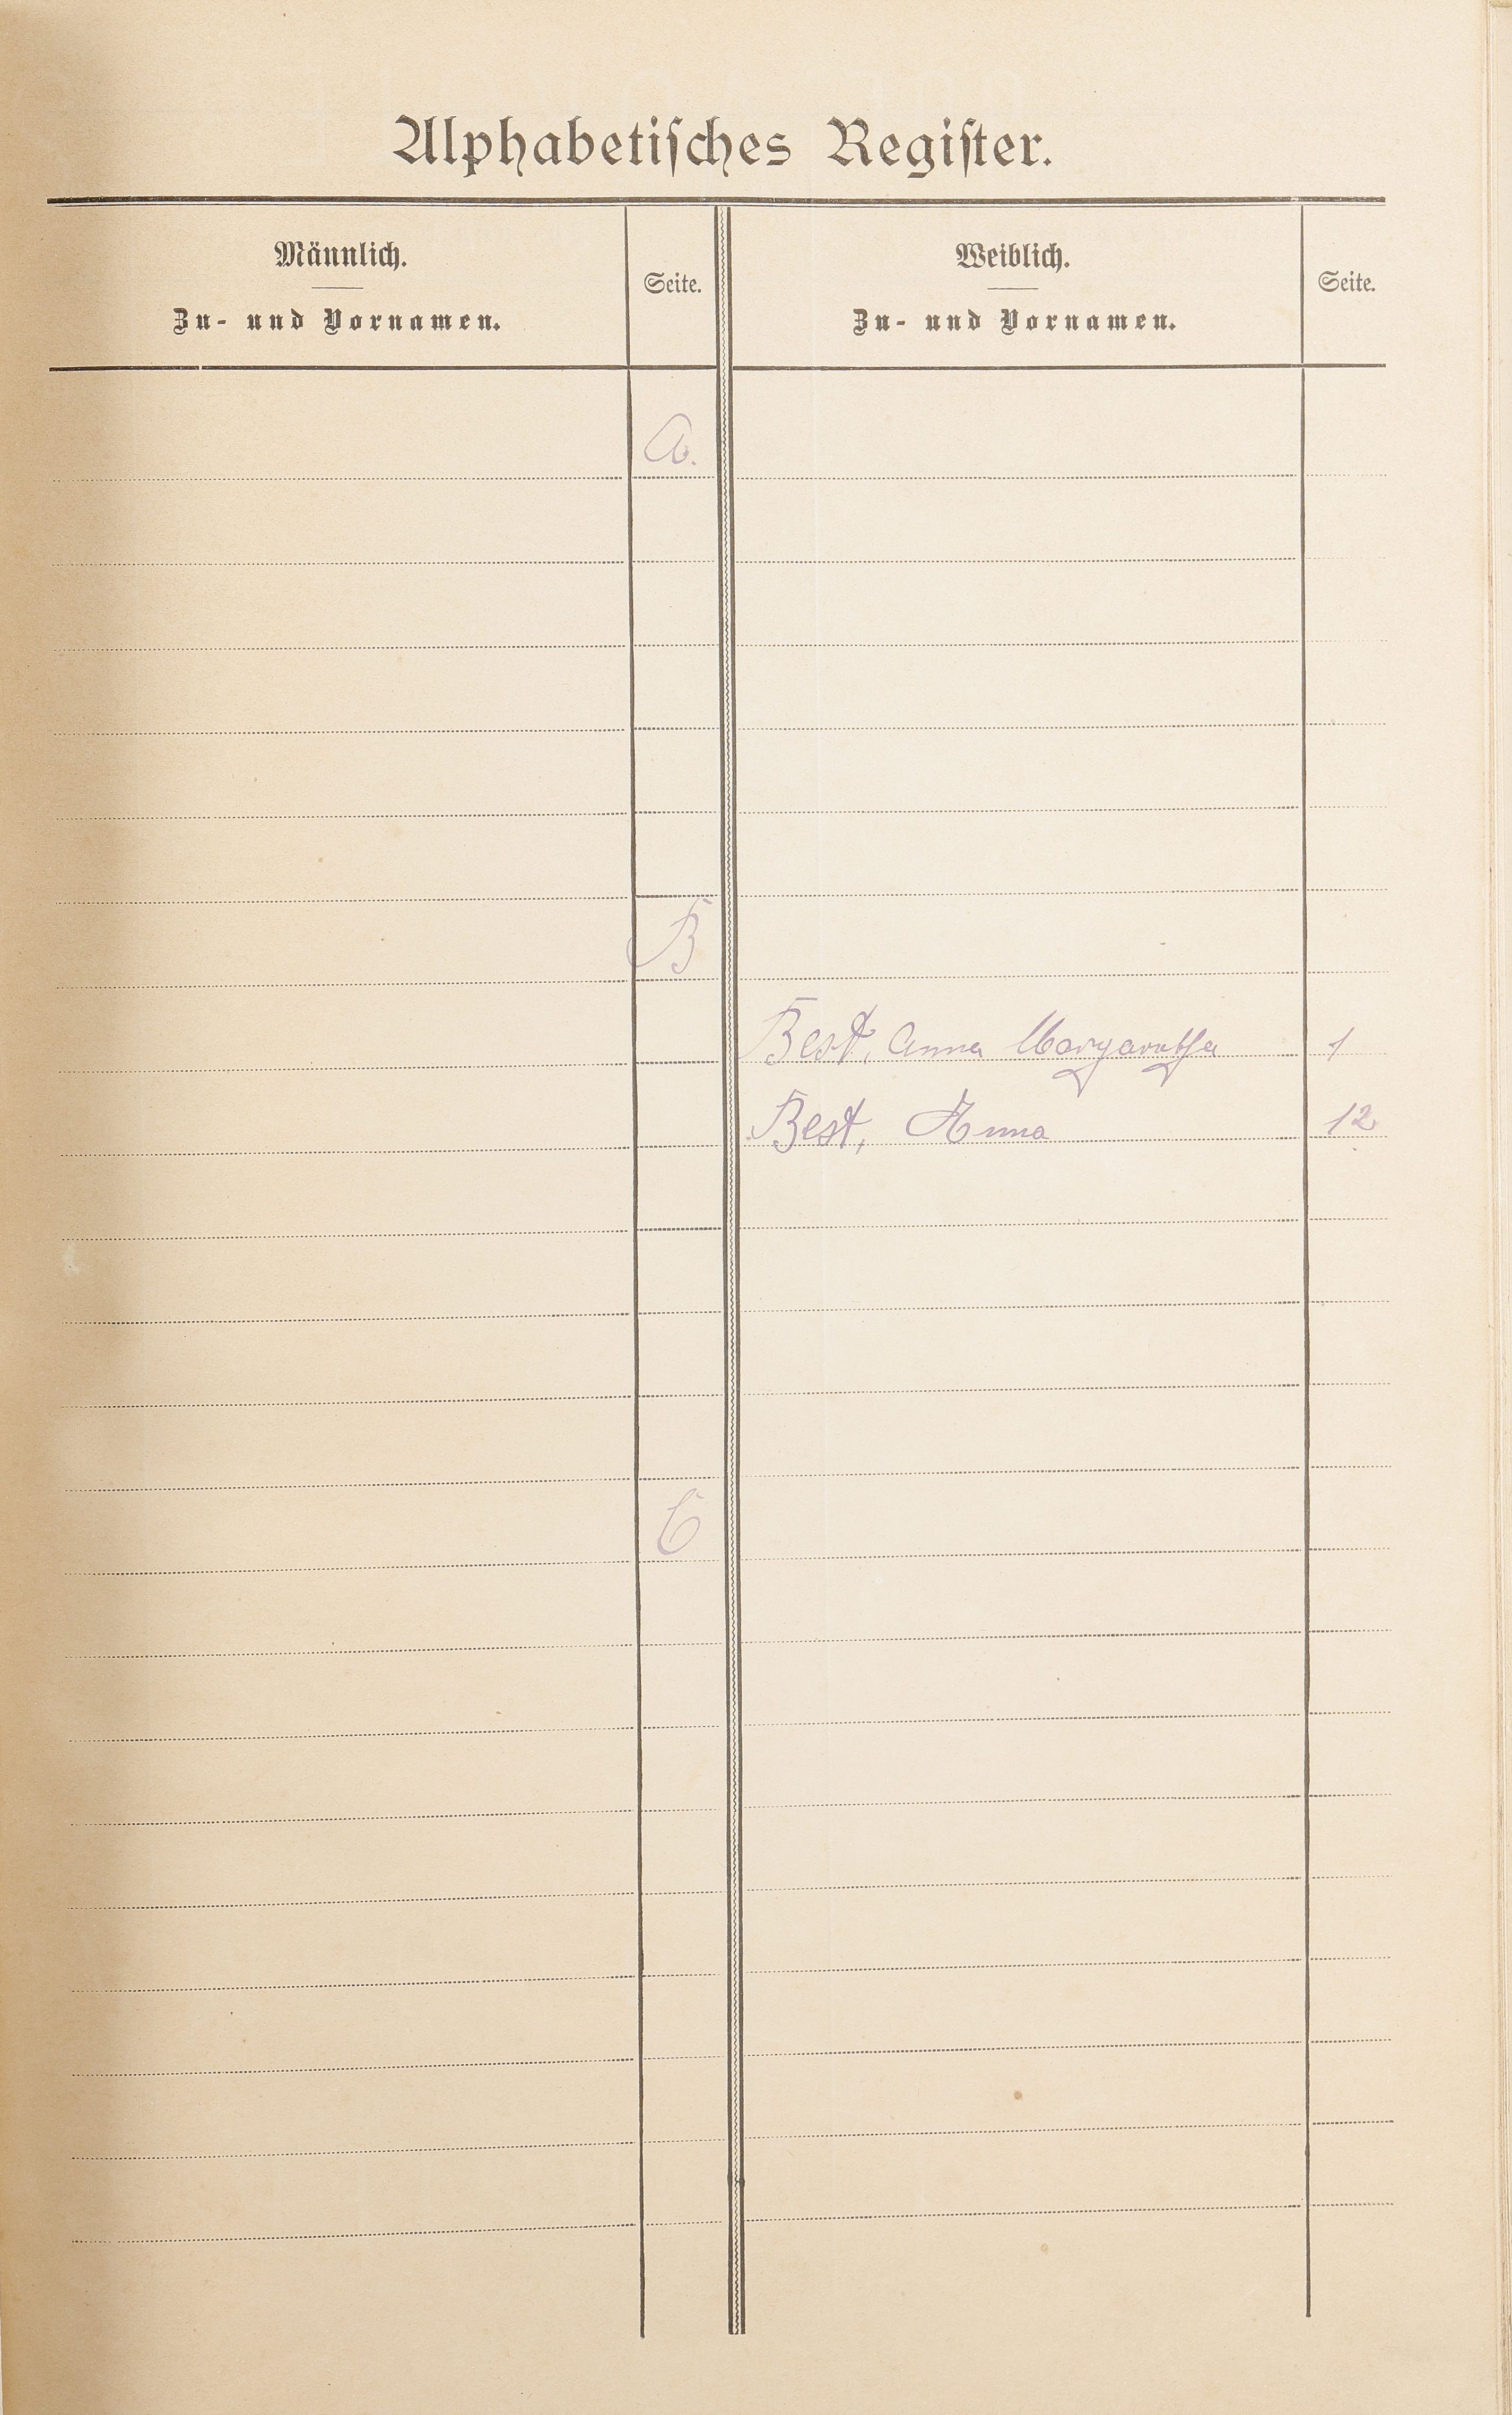 Alphabetisches Register.
Männlich.
Zu- und Vornamen.
Seite.
Weiblich.
Zu- und Vornamen.
Seite.
A.
B
Best, Anna Margaretha 1
Best, Anna 12
C